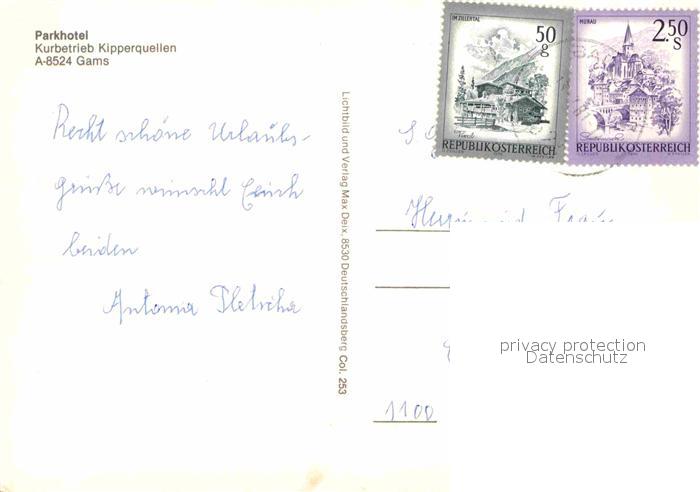 Parkhotel
Kurbetrieb Kipperquellen
A-8524 Gams
Recht schöne Urlaubs-
grüße wünscht Euch
beiden
Antonia
Lichtbild und Verlag Max Deix, 8530 Deutschlandsberg Col. 253
IM ZILLERTAL
50
g
Tirol
REPUBLIK ÖSTERREICH
MURAU
2.50
S
REPUBLIK ÖSTERREICH
Frau
1100
privacy protection
Datenschutz